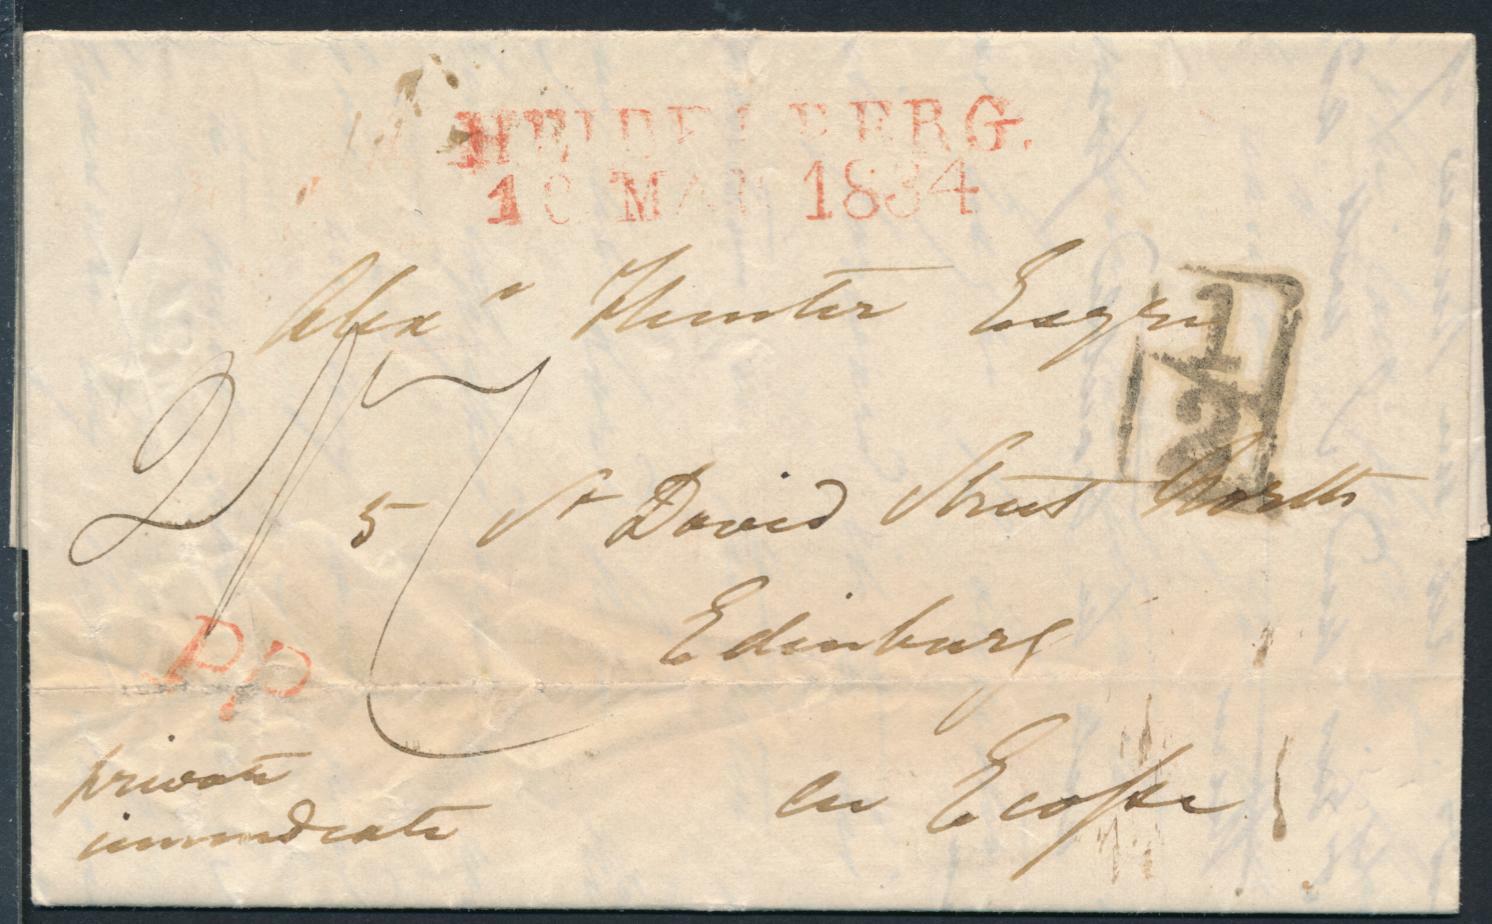 HEIDELBERG.
10 MAR 1834
Alexr Hunter Esqre
1/2
2/7
5 St David Street North
Edinburg
PP
en Ecosse
private
immediate